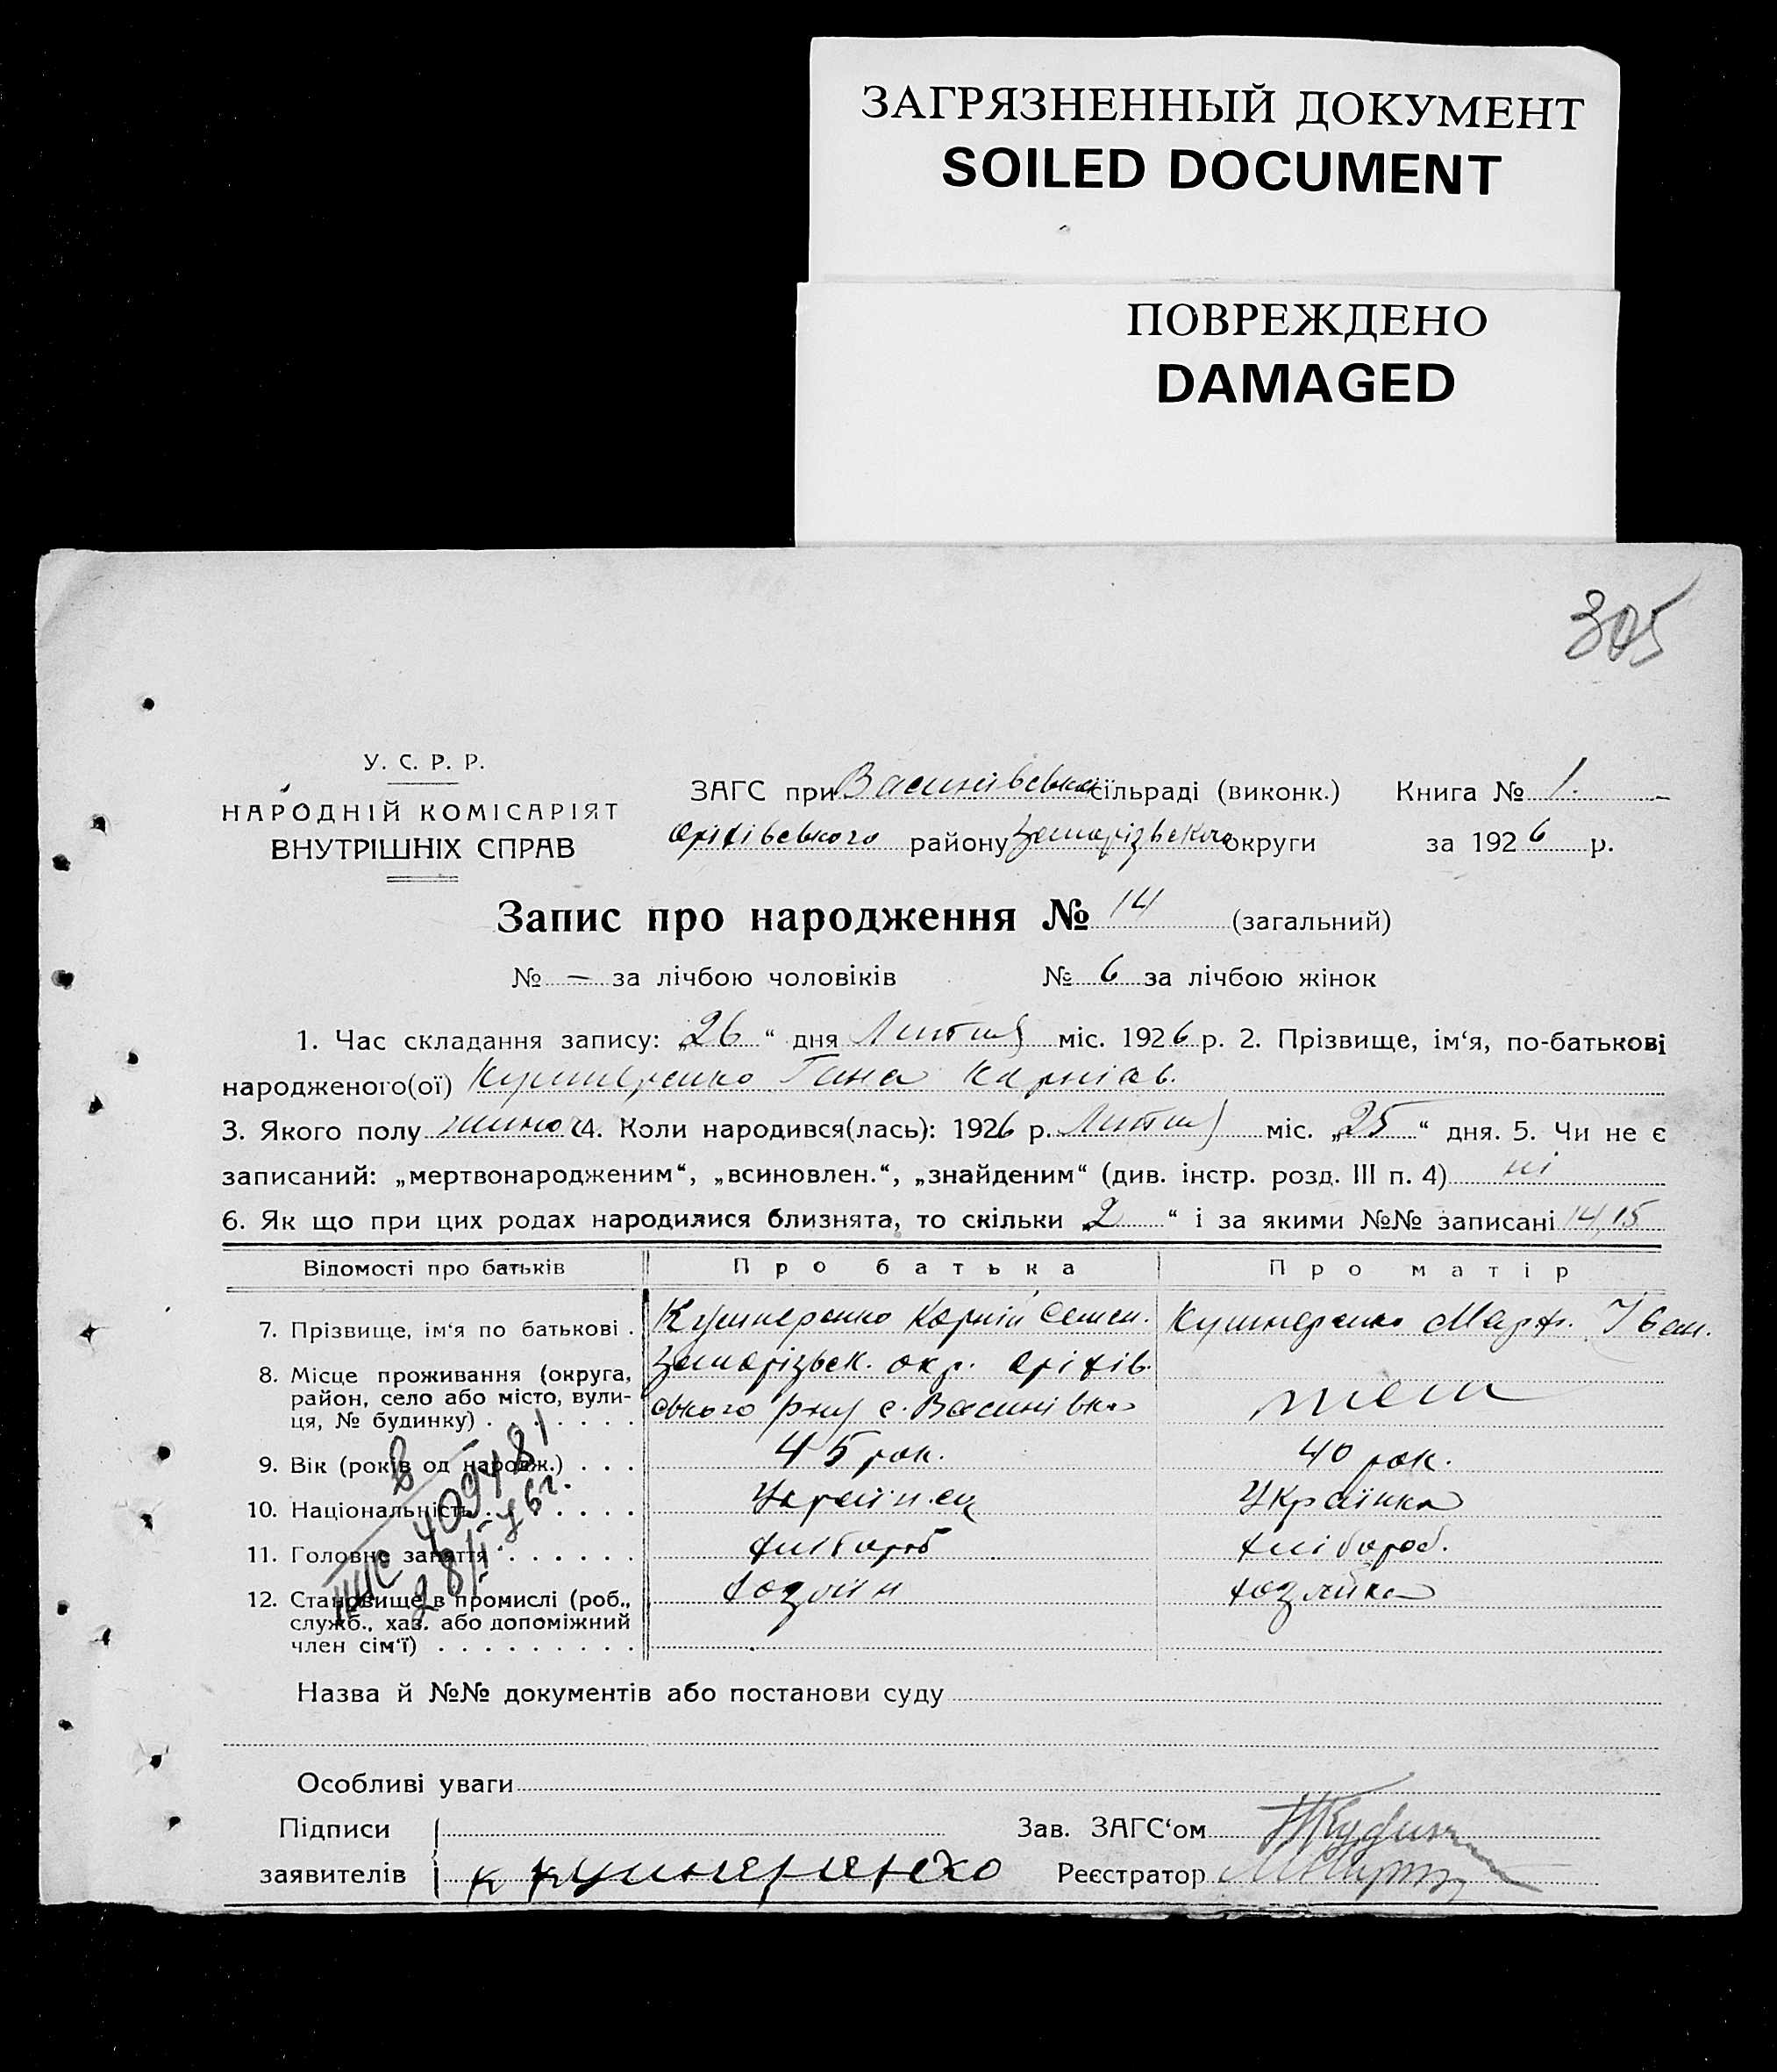 ЗАГРЯЗНЕННЫЙ ДОКУМЕНТ
SOILED DOCUMENT
ПОВРЕЖДЕНО
DAMAGED
305
У. С. Р. Р.
НАРОДНІЙ КОМІСАРІЯТ
ВНУТРІШНІХ СПРАВ
ЗАГС при Васинівській сільраді (виконк.) Книга № 1.
Оріхівського району Запорізького округи за 1926 р.
Запис про народження № 14 (загальний)
№ — за лічбою чоловіків № 6 за лічбою жінок
1. Час складання запису: „26“ дня Лютия міс. 1926 р. 2. Прізвище, ім‘я, по-батькові
народженого(ої) Кушнеренко Гана Карніов.
3. Якого полу жиноч 4. Коли народився(лась): 1926 р. Лютия міс. „25“ дня. 5. Чи не є
записаний: „мертвонародженим“, „всиновлен.“, „знайденим“ (див. інстр. розд. III п. 4) ні
6. Як що при цих родах народилися близнята, то скільки „2“ і за якими №№ записані 14, 15
Відомості про батьків Про батька Про матір
7. Прізвище, ім‘я по батькові . Кушнеренко Корній Семен. Кушнеренко Марф. Іван.
8. Місце проживання (округа, район, село або місто, вулиця, № будинку) . . . . . . . Запорізьк. окр. Оріхів-
ського р-ну с. Васинівка теж
9. Вік (років од народж.) . . . 45 рок. 40 рок.
10. Національність . . . . . . . Україн.ец Українка
11. Головне заняття . . . . . . хлібороб хлібороб.
12. Становище в промислі (роб., служб., хаз. або допоміжний член сім‘ї) . . . . . . . . . хозяїн хозяйка
Назва й №№ документів або постанови суду
Особливі уваги
Підписи
заявителів К Кушнеренко
Зав. ЗАГС‘ом
Реєстратор